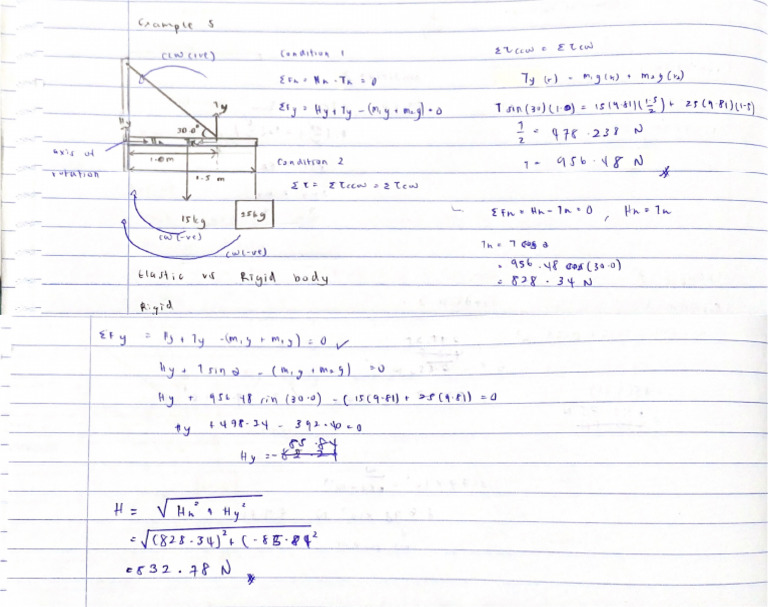 Example 5
CCW (+ve)
Ty
Hy
30.0°
Hx
axis of rotation
1.0 m
1.5 m
15kg
25kg
CW (-ve)
CW (-ve)
Elastic vs Rigid body
Rigid
Condition 1
ΣFx = Hx - Tx = 0
ΣFy = Hy + Ty - (m₁g + m₂g) = 0
Condition 2
Στ = Στccw = Στcw
Στccw = Στcw
Ty (r) = m₁g(r₁) + m₂g(r₂)
T sin(30)(1.0) = 15(9.81)(1.5/2) + 25(9.81)(1.5)
T/2 = 478.238 N
T = 956.48 N
ΣFx = Hx - Tx = 0 , Hx = Tx
Tx = T cos θ
= 956.48 cos(30.0)
= 828.34 N
ΣFy = Fy + Ty - (m₁g + m₂g) = 0 ✓
Hy + T sin θ - (m₁g + m₂g) = 0
Hy + 956.48 sin (30.0) - (15(9.81) + 25(9.81)) = 0
Hy + 498.24 - 392.40 = 0
Hy = - 85.84
H = √Hx² + Hy²
= √(828.34)² + (-85.84)²
= 832.78 N